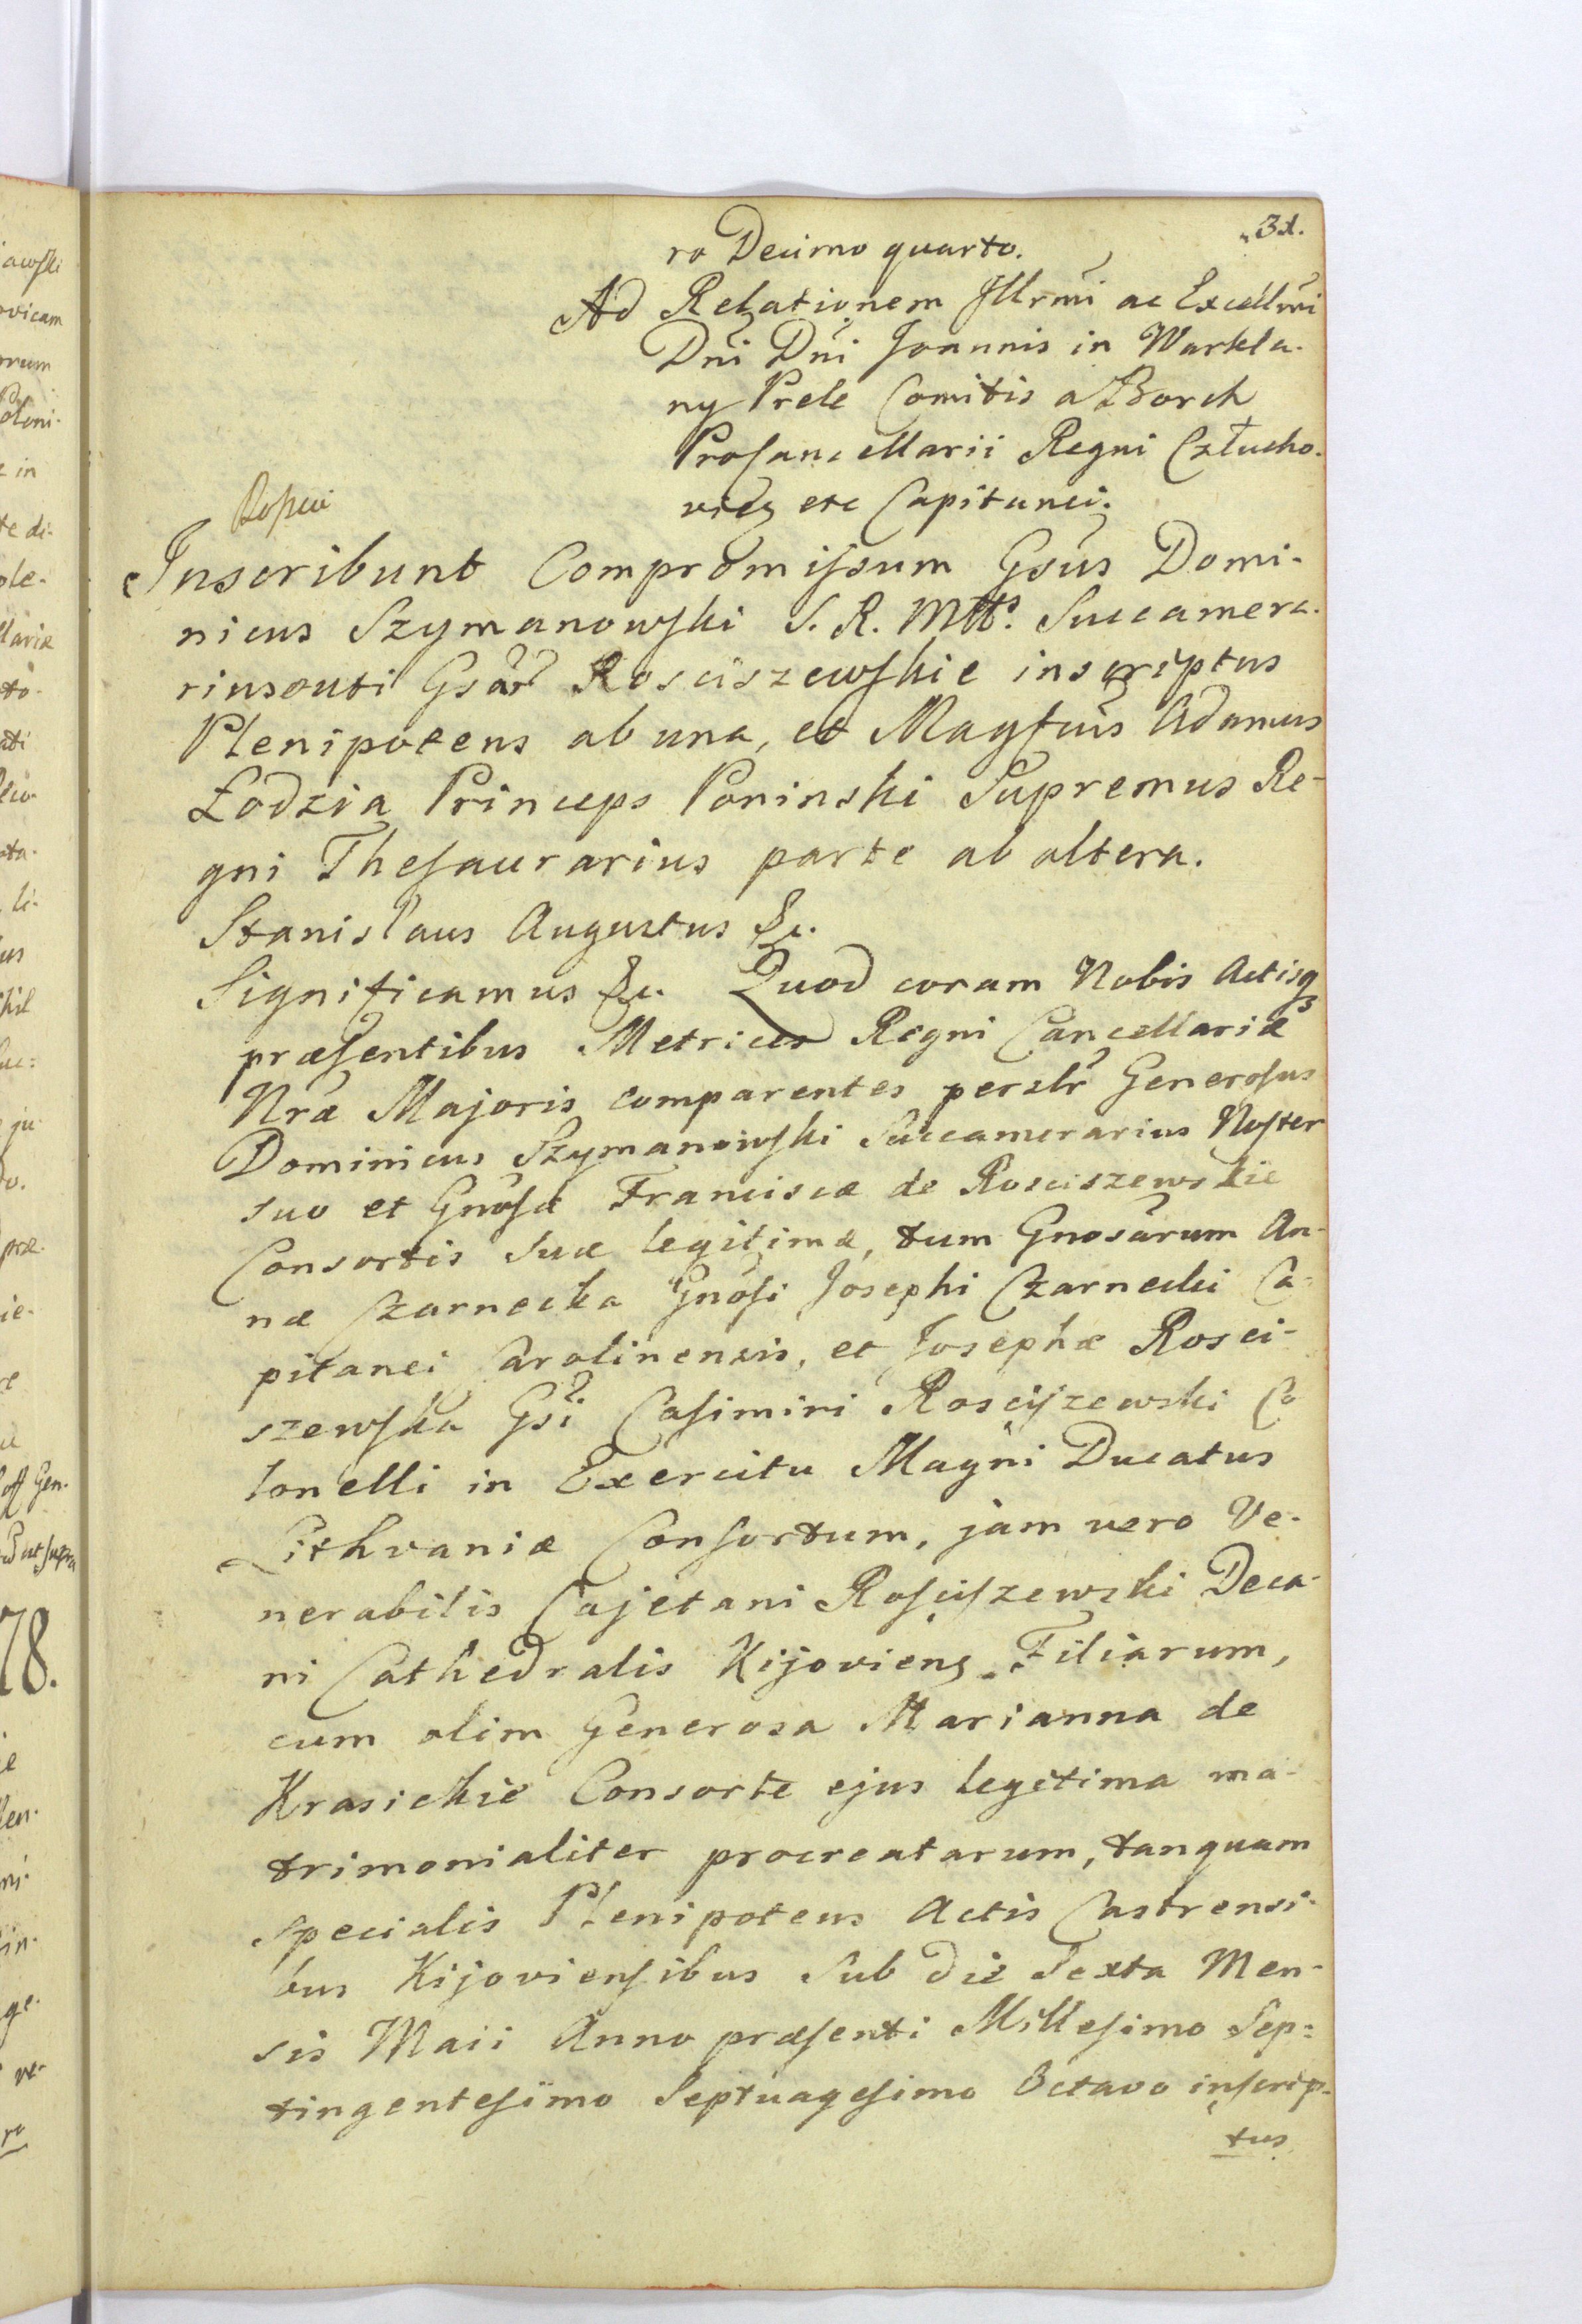 31.
ro Decimo quarto.
Ad Relationem Illrmi ac Excellmi
Dni Dni Joannis in Warkla-
ny Prele Comitis a Borch
Procancellarii Regni Człucho-
vien etc Capitanei.
Inscribunt Compromissum Gsus Domi-
nicus Szymanowski S. R. Mttis Succamera-
rius Gsar Rosciszewskie inscriptus
Plenipotens ab una, et Magfcus Adamus
Łodzia Princeps Poninski Supremus Re-
gni Thesaurarius parte ab altera.
Stanislaus Augustus &c.
Significamus &c. Quod coram Nobis Actisq
præsentibus Metrices Regni Cancellariæ
Nræ Majoris comparentes persltr Generosus
Dominicus Szymanowski Succamerarius Noster
suo et Gnosæ Franciscæ de Rosciszewskie
Consortis suæ legitimæ, tum Gnosarum An-
næ Czarnecka Gnosi Josephi Czarnecki Ca-
pitanei Carolinensis, et Josephæ Rosci-
szewska Gsi Casimiri Rosciszewski Co
lonelli in Exercitu Magni Ducatus
Lithvaniæ Consortum, jam vero Ve-
nerabilis Cajetani Rosciszewski Deca-
ni Cathedralis Kijoviens. Filiarum,
cum olim Generosa Marianna de
Krasickie Consorte ejus legitima ma-
trimonialiter procreatarum, tanquam
specialis Plenipotens Actis Castrensi-
bus Kijoviensibus Sub die Sexta Men-
sis Maii Anno præsenti Millesimo Sep=
tingentesimo Septuagesimo Octavo inscrip-
tus